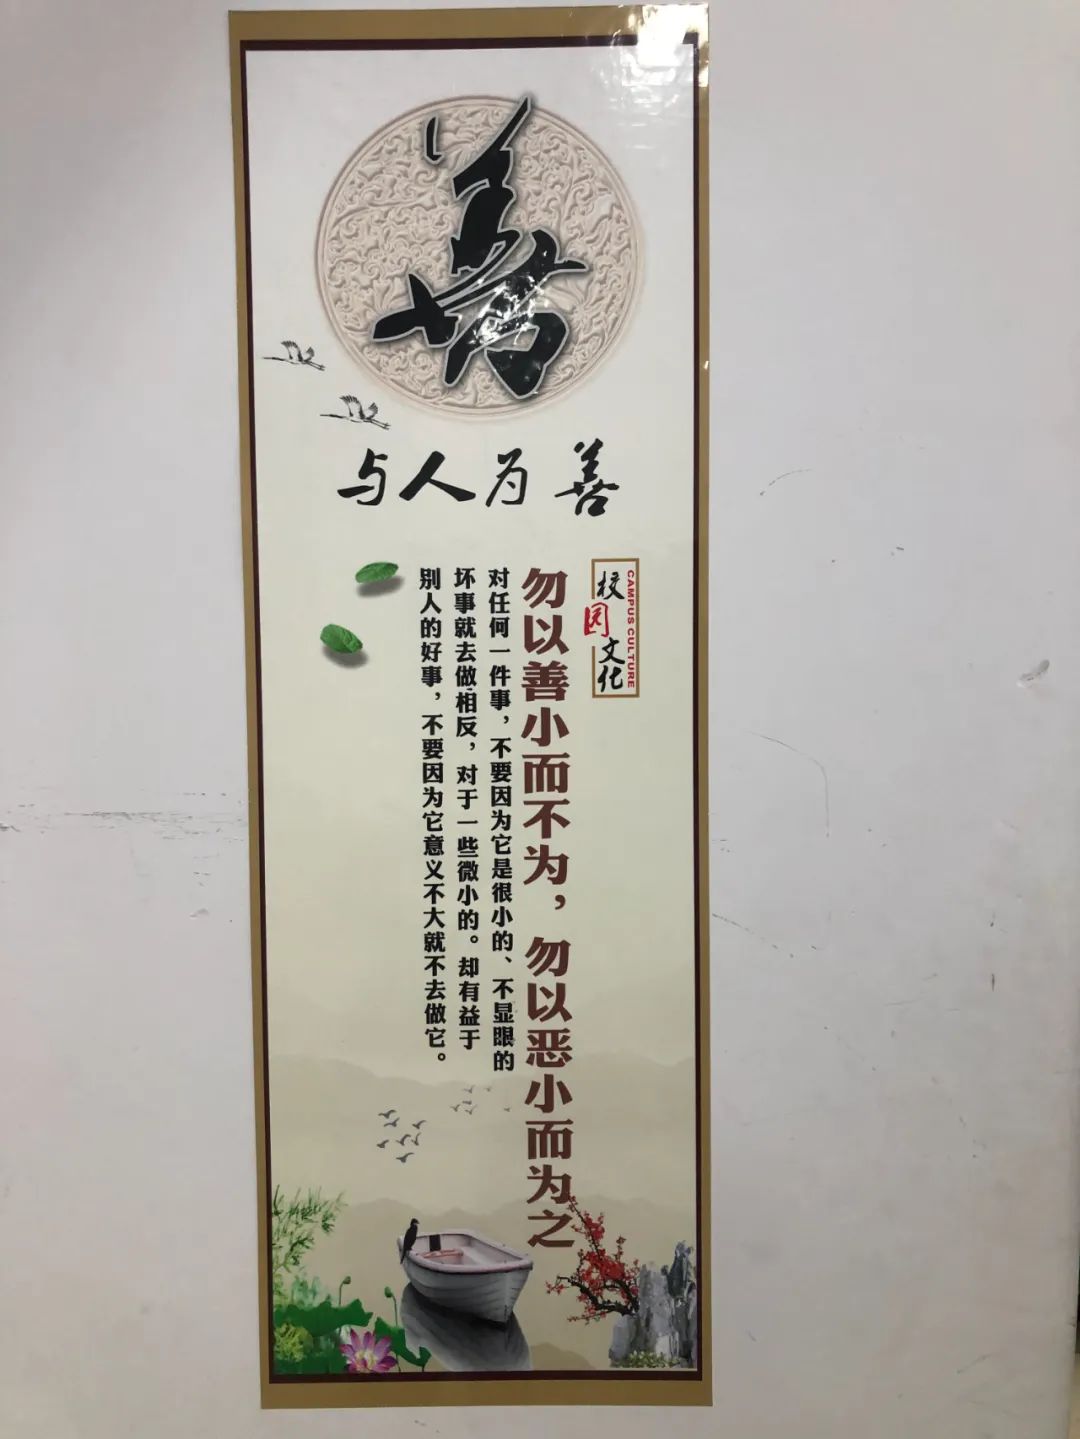 善
与人为善
校园文化
CAMPUS CULTURE
勿以善小而不为，勿以恶小而为之
对任何一件事，不要因为它是很小的、不显眼的
坏事就去做，相反，对于一些微小的。却有益于
别人的好事，不要因为它意义不大就不去做它。